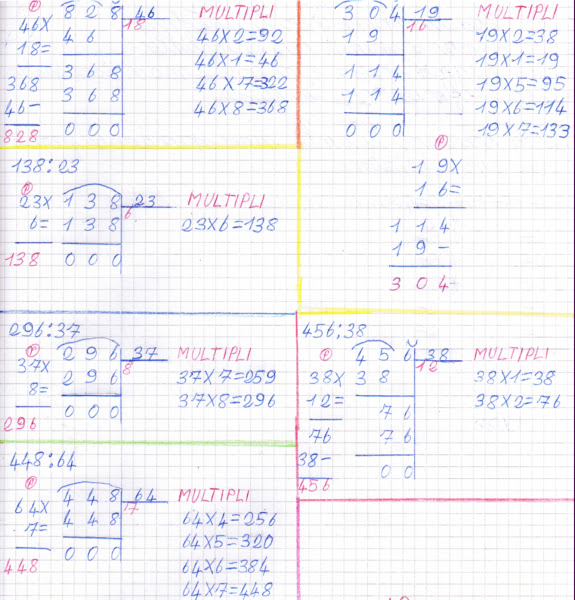 Ⓟ 8 2 8 46 MULTIPLI
46X 4 6 18 46X2=92
18= 46X1=46
368 3 6 8 46X7=322
46- 3 6 8 46X8=368
828 0 0 0
3 0 4 19 MULTIPLI
1 9 16 19X2=38
19X1=19
1 1 4 19X5=95
1 1 4 19X6=114
0 0 0 19X7=133
Ⓟ
1 9X
1 6=
1 1 4
1 9 -
3 0 4
138:23
Ⓟ
23X 1 3 8 23 MULTIPLI
6= 1 3 8 6 23X6=138
138 0 0 0
296:37
Ⓟ 2 9 6 37 MULTIPLI
37X 2 9 6 8 37X7=259
8= 37X8=296
296 0 0 0
456:38
Ⓟ 4 5 6 38 MULTIPLI
38X 3 8 12 38X1=38
12= 7 6 38X2=76
76 7 6
38- 0 0
456
448:64
Ⓟ 4 4 8 64 MULTIPLI
64X 4 4 8 7 64X4=256
7= 64X5=320
448 0 0 0 64X6=384
64X7=448